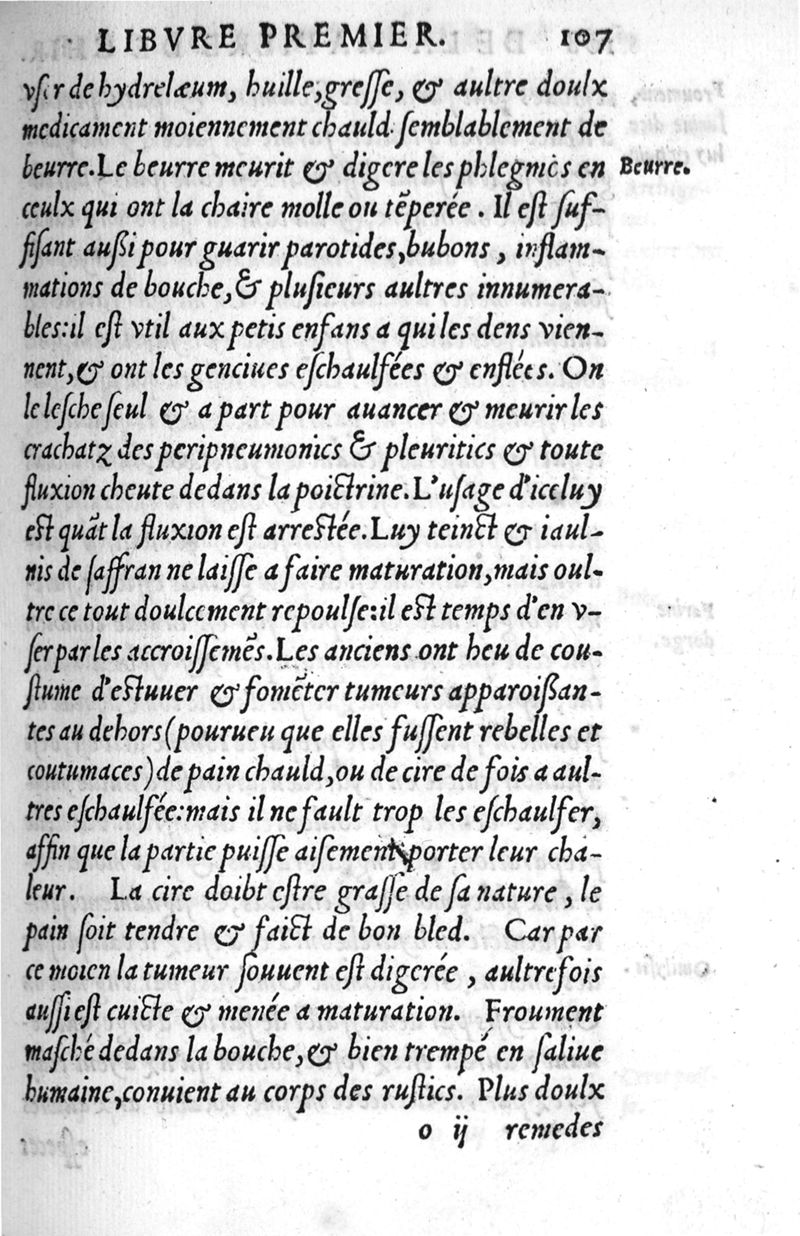 LIBVRE PREMIER. 107
vſer de hydrelæum, huille, greſſe, & aultre doulx
medicament moiennement chauld ſemblablement de
beurre. Le beurre meurit & digere les phlegmẽs en
Beurre.
ceulx qui ont la chaire molle ou tẽperée. Il eſt ſuf-
fiſant außi pour guarir parotides, bubons, inflam-
mations de bouche, & pluſieurs aultres innumera-
bles: il eſt vtil aux petis enfans a qui les dens vien-
nent, & ont les genciues eſchaulfées & enflées. On
le leſche ſeul & a part pour auancer & meurir les
crachatz des peripneumonics & pleuritics & toute
fluxion cheute dedans la poictrine. L'uſage d'iceluy
eſt quãt la fluxion eſt arreſtée. Luy teinct & iaul-
nis de ſaffran ne laiſſe a faire maturation, mais oul-
tre ce tout doulcement repoulſe: il eſt temps d'en v-
ſer par les accroiſſemẽs. Les anciens ont heu de cou-
ſtume d'eſtuuer & fomẽter tumeurs apparoißan-
tes au dehors (pourueu que elles fuſſent rebelles et
coutumaces) de pain chauld, ou de cire de fois a aul-
tres eſchaulfée: mais il ne fault trop les eſchaulfer,
affin que la partie puiſſe aiſement porter leur cha-
leur. La cire doibt eſtre graſſe de ſa nature, le
pain ſoit tendre & faict de bon bled. Car par
ce moien la tumeur ſouuent eſt digerée, aultrefois
auſſi eſt cuicte & menée a maturation. Froument
maſché dedans la bouche, & bien trempé en ſaliue
humaine, conuient au corps des ruſtics. Plus doulx
o ij remedes